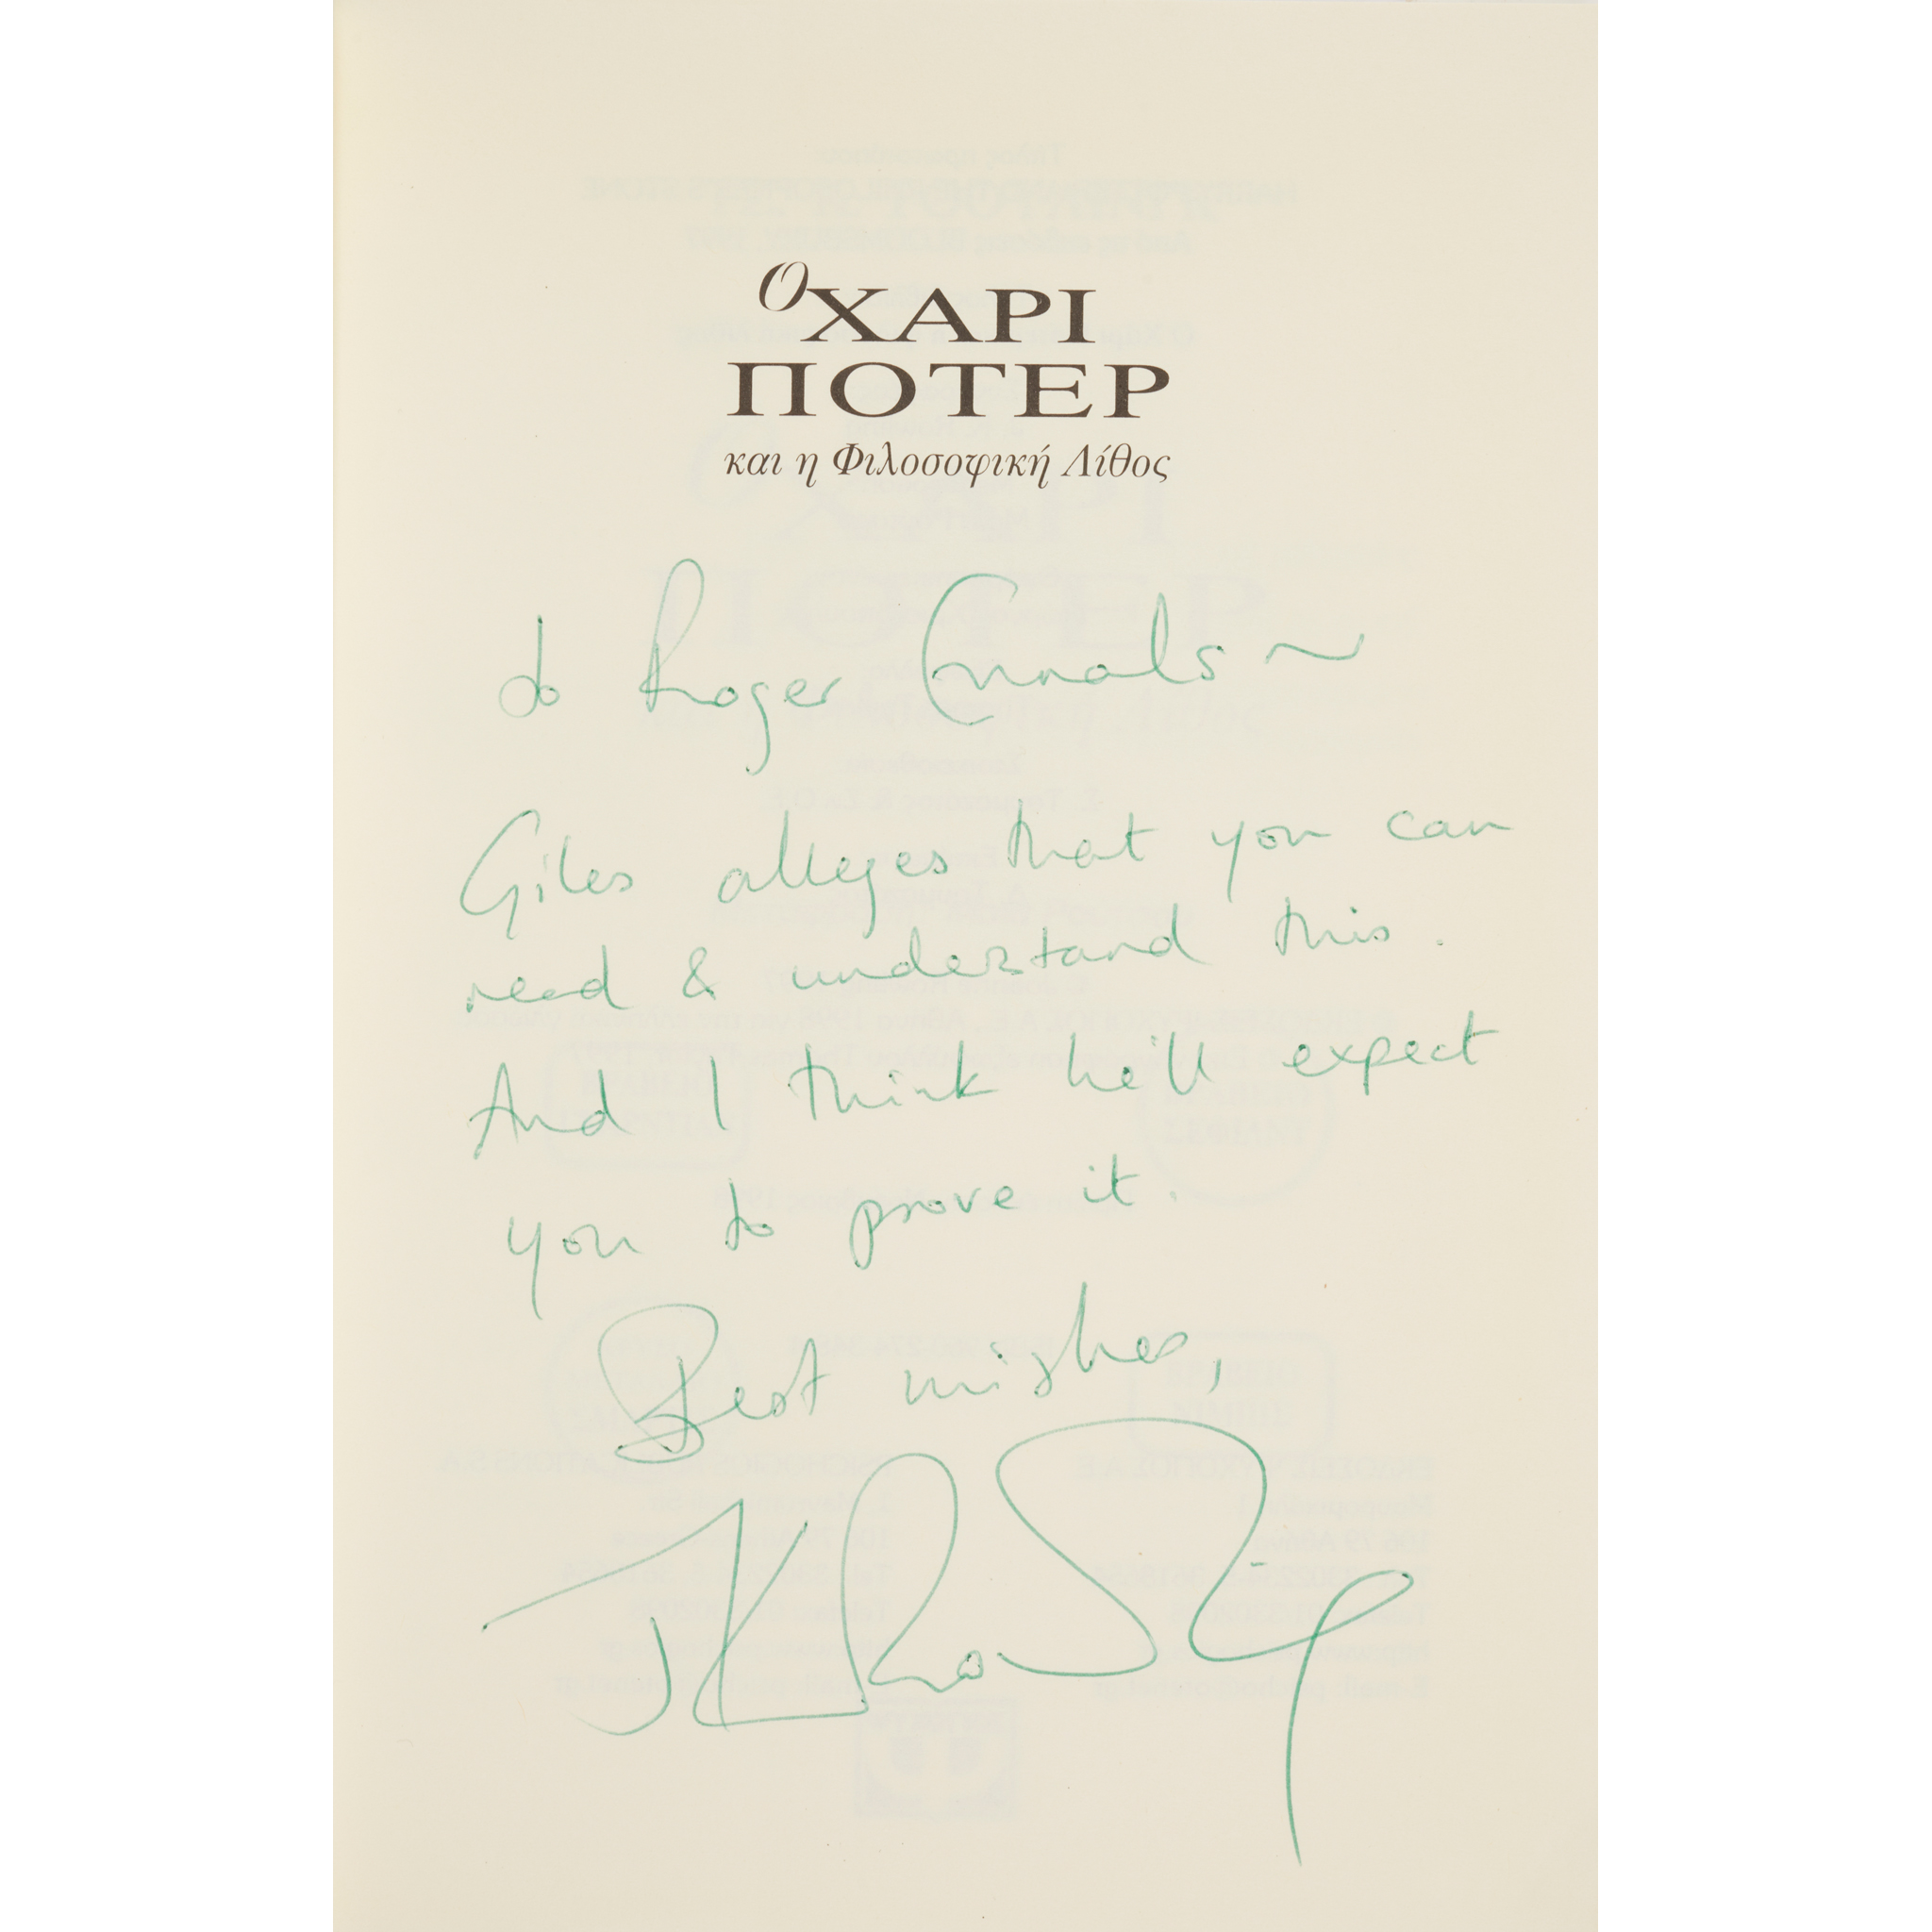 Ο ΧΑΡΙ
ΠΟΤΕΡ
και η Φιλοσοφική Λίθος
to Roger
Giles alleges that you can
read & understand this.
And I think he'll expect
you to prove it.
Best wishes,
JK Rowling